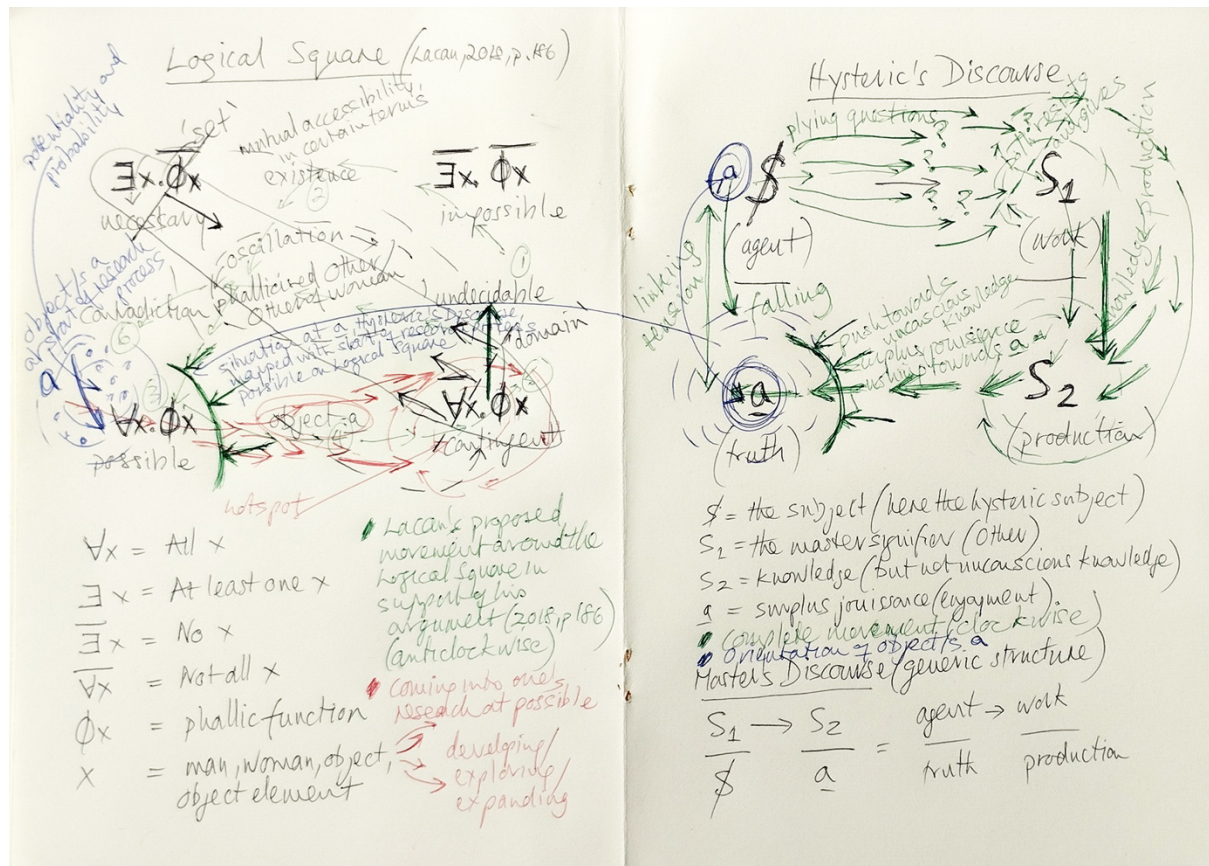 Logical Square (Lacan, 2018, p.186)
potentiality and
probability
'set'
mutual accessibility
in certain terms
∃x.Φ̅x̅
existence
∃̅x̅.Φ̅x̅
②
necessary
impossible
oscillation
①
object/s a
as part of research
process
contradiction
phallicized Other
Other of woman
undecidable
⑥
situation at a Hysteric's Discourse
mapped with starting research process
possible on Logical Square
domain
a
③
∀x.Φx
object a
∀̅x̅.Φx
possible
contingent
hotspot
∀x = All x
∃x = At least one x
∃̅x̅ = No x
∀̅x̅ = Not all x
Φx = phallic function
x = man, woman, object,
object element
Lacan's proposed
movement around the
Logical Square in
support of his
argument (2018, p186)
(anticlockwise)
coming into one's
research at possible
developing/
exploring/
expanding
Hysteric's Discourse
plying questions
? ? ? ? ? ?
a $
S₁
(agent)
(work)
knowledge-production
linking
tension
falling
push towards
unconscious
knowledge
surplus jouissance
pushing towards a
a
S₂
(truth)
(production)
$ = the subject (here the hysteric subject)
S₁ = the master signifier (Other)
S₂ = knowledge (but not unconscious knowledge)
a = surplus jouissance (enjoyment)
complete movement (clockwise)
orientation of object/s a
Master's Discourse (generic structure)
S₁ → S₂ = agent → work
$ a truth production